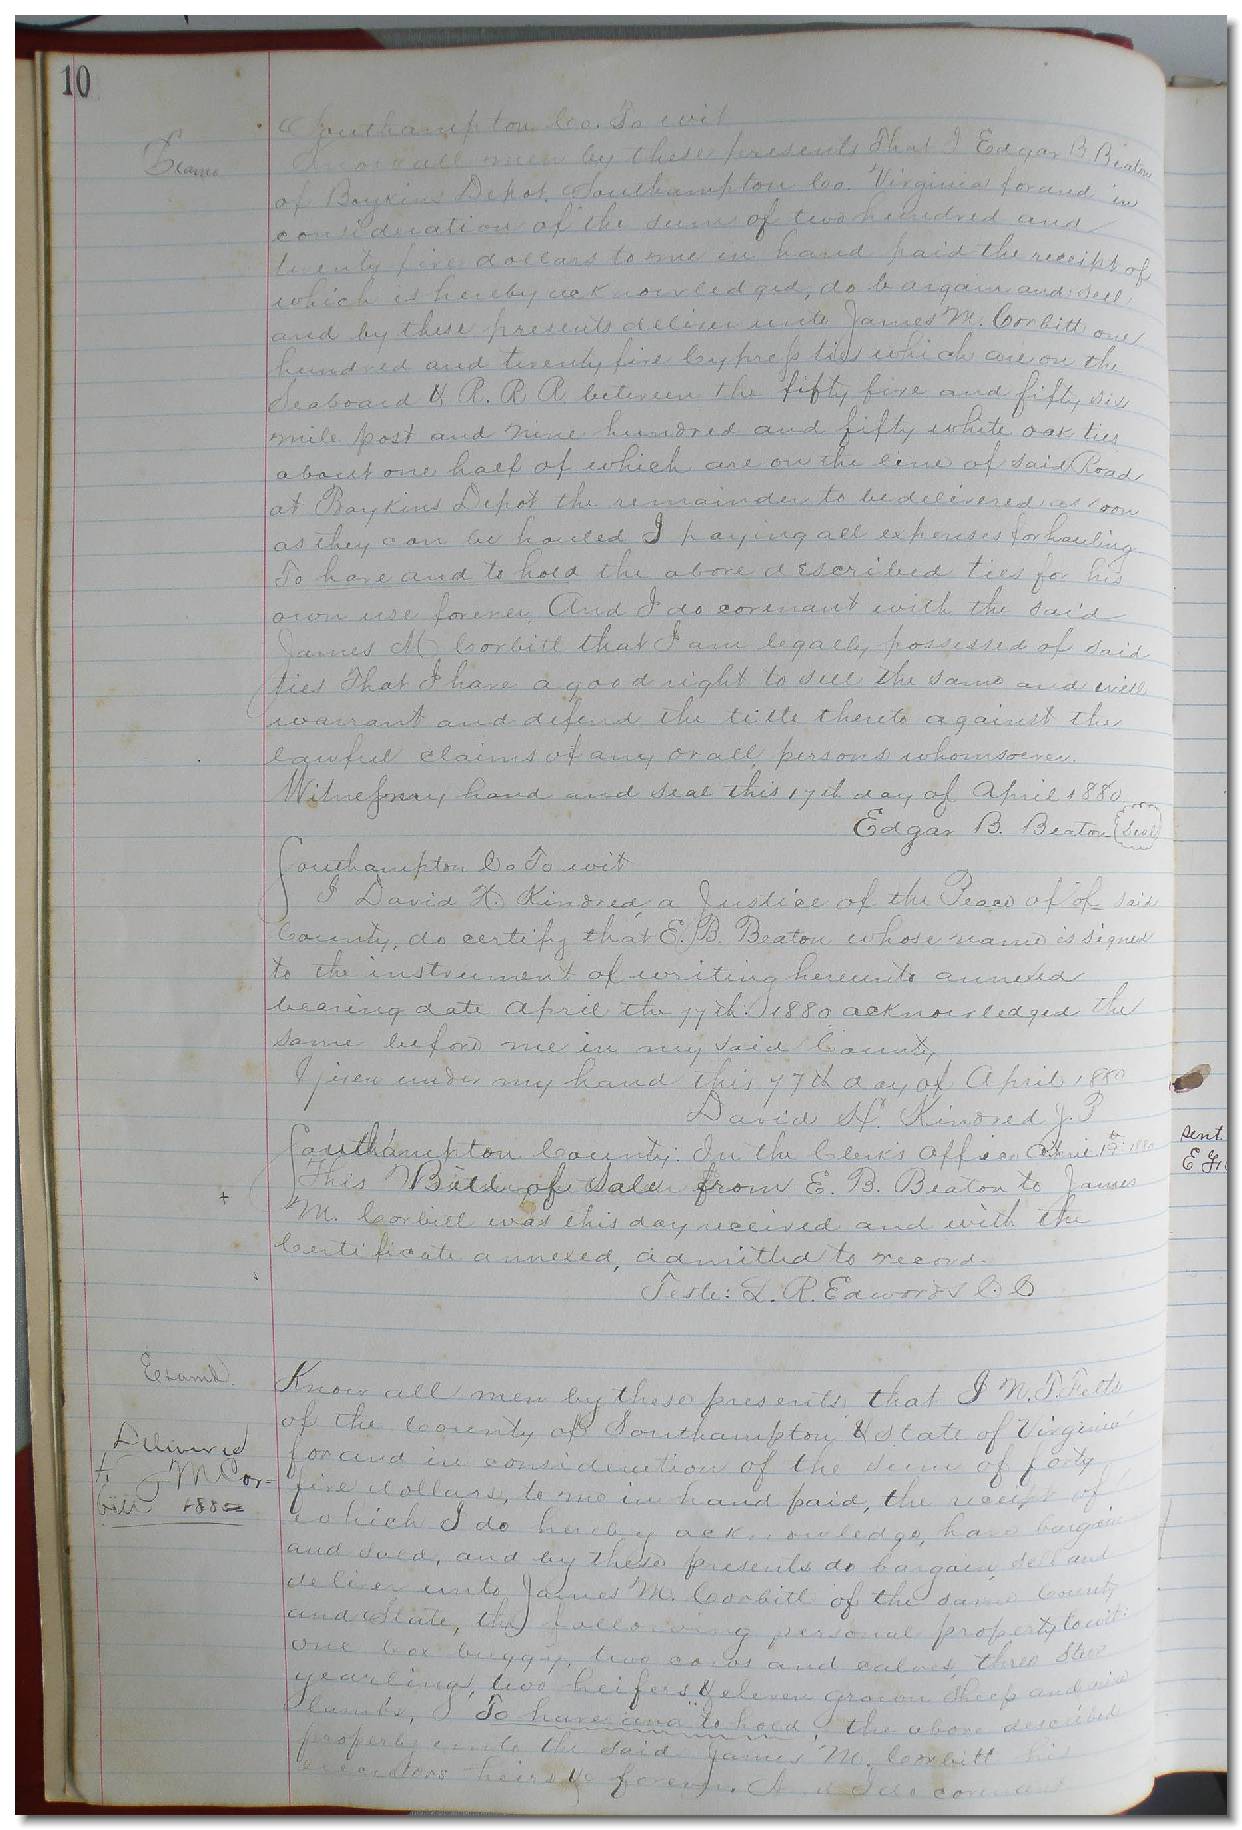 10
Southampton Co. To wit
Examd
Know all men by these presents That I Edgar B Beaton
of Boykins Depot. Southampton Co. Virginia for and in
consideration of the sum of two hundred and
twenty five dollars to me in hand paid the receipt of
which is hereby acknowledged, do bargain and sell
and by these presents deliver unto James M. Corbitt one
hundred and twenty five Cypress ties which are on the
Seaboard & R. R. R. between the fifty five and fifty six
mile post and nine hundred and fifty white oak ties
about one half of which are on the line of said Road
at Boykins Depot the remainder to be delivered as soon
as they can be hauled I paying all expenses for hauling
To have and to hold the above described ties for his
own use forever. And I do covenant with the said
James M Corbitt that I am legally possessed of said
ties That I have a good right to sell the same and will
warrant and defend the title thereto against the
lawful claims of any or all persons whomsoever.
Witness my hand and seal this 17th day of April 1880
Edgar B. Beaton Seal
Southampton Co To wit
I David H. Kindred, a Justice of the Peace of of said
County, do certify that E. B. Beaton whose name is signed
to the instrument of writing hereunto annexed
bearing date April the 17th 1880 acknowledged the
same before me in my said County
Given under my hand this 17th day of April 1880
David H. Kindred J. P
Southampton County: In the Clerks Office April 19th 1880
This Bill of Sale from E. B. Beaton to James
M. Corbitt was this day received and with the
Certificate annexed, admitted to record.
Teste: L. R. Edwards C. C
Examd.
Know all men by these presents, that I N. T. Felts
of the County of Southampton & State of Virginia
for and in consideration of the sum of forty
five dollars, to me in hand paid, the receipt of
which I do hereby acknowledge, have bargain
and sold, and by these presents do bargain, sell and
deliver unto James M. Corbitt of the same County
and State, the following personal property to wit:
one box buggy, two cows and calves, three steer
yearling, two heifers & eleven grown sheep and nine
lambs, To have and to hold, the above described
property unto the said James M. Corbitt his
executors heirs &c forever. And I do covenant
Delivered
to J M Cor-
bitt 1880
sent
E